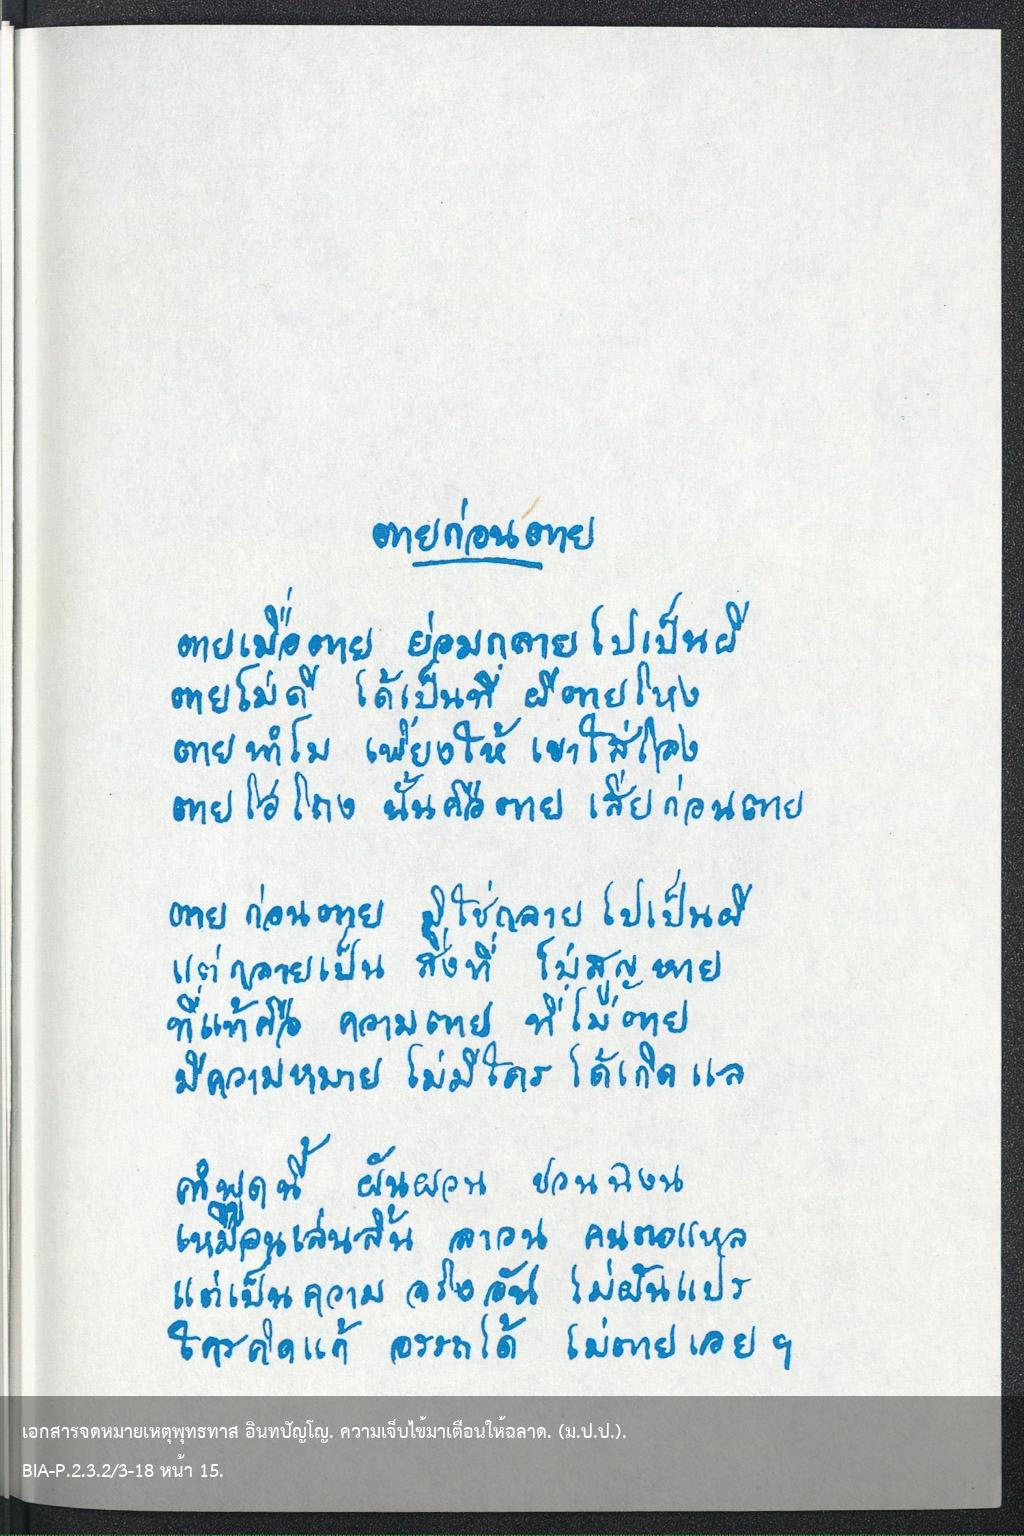 ตายก่อนตาย
ตายเมื่อตาย ย่อมกลายไปเป็นผี
ตายไม่ดี ได้เป็นที่ ผีตายโหง
ตายทำไม เพียงให้ เขาใส่โลง
ตายโอ่โถง นั้นคือตาย เสียก่อนตาย
ตายก่อนตาย มิใช่กลายไปเป็นผี
แต่กลายเป็น สิ่งที่ ไม่สูญหาย
ที่แท้คือ ความตาย ที่ไม่ตาย
มีความหมาย ไม่มีใคร ได้เกิดแล
คำพูดนี้ ผันผวน ชวนฉงน
เหมือนเล่นลิ้น ลาวน คนตอแหล
แต่เป็นความ จริงอัน ไม่ผันแปร
ใครคิดแก้ อรรถได้ ไม่ตายเลยฯ
เอกสารจดหมายเหตุพุทธทาส อินทปัญโญ. ความเจ็บไข้มาเตือนให้ฉลาด. (ม.ป.ป.).
BIA-P.2.3.2/3-18 หน้า 15.